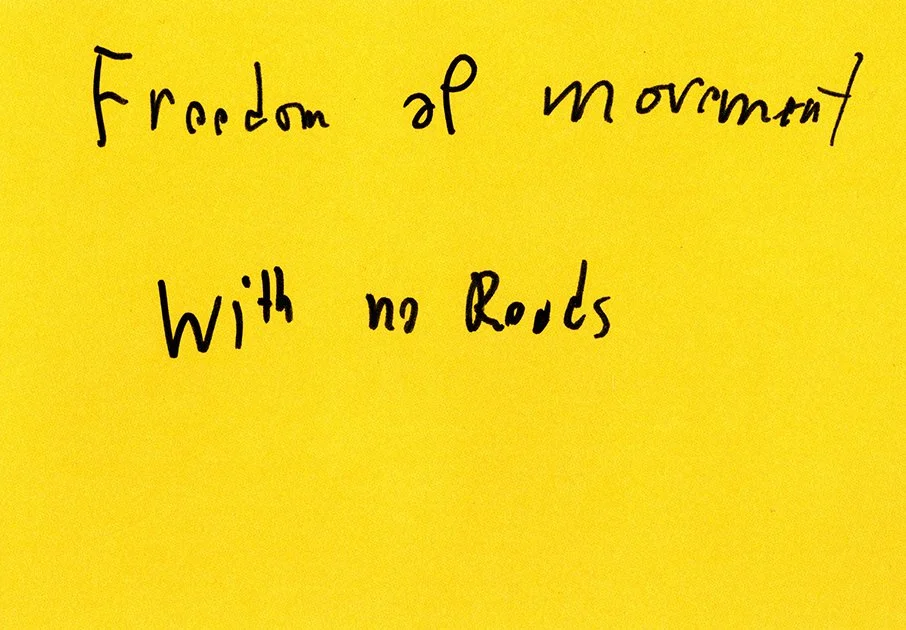 Freedom of movement
With no Roads